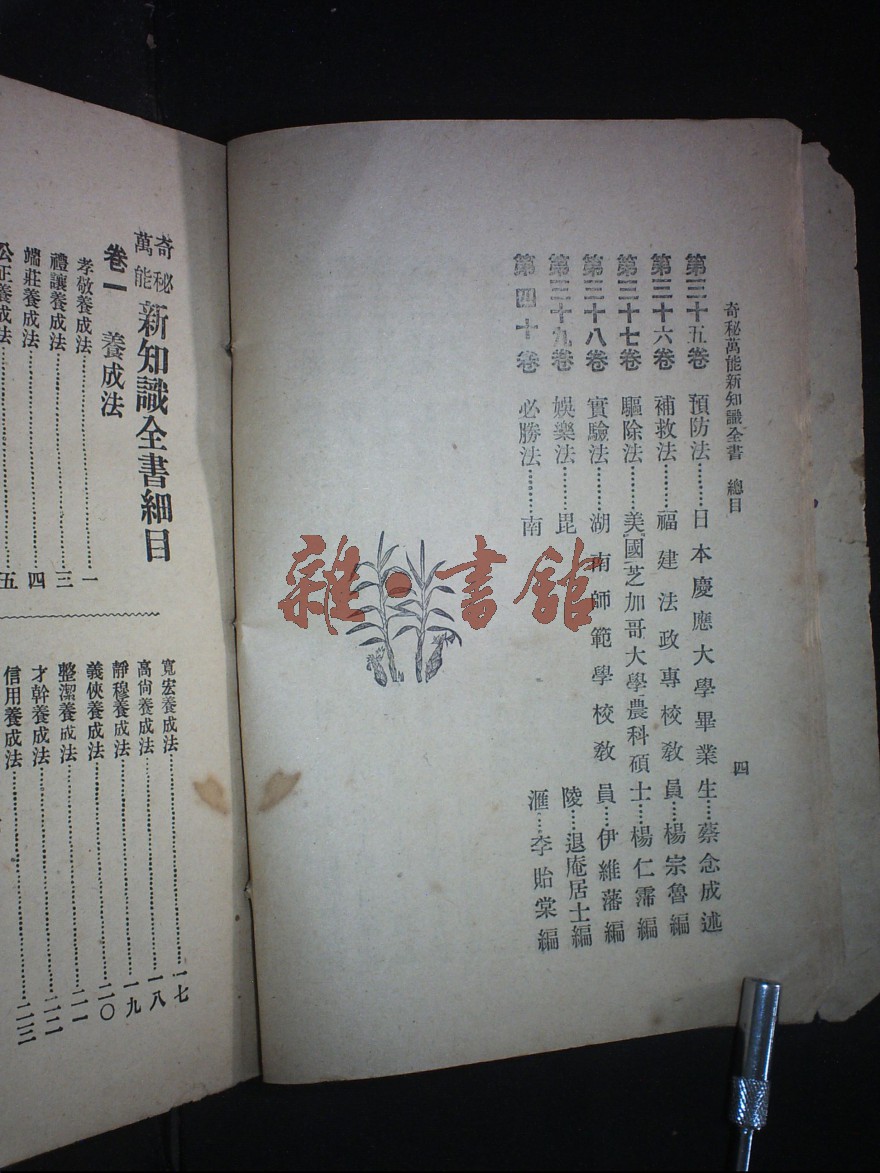 奇秘萬能新知識全書　總目
四
第三十五卷　預防法………日本慶應大學畢業生…蔡念成述
第三十六卷　補救法………福建法政專校教員…楊宗魯編
第三十七卷　驅除法………美國芝加哥大學農科碩士…楊仁霈編
第三十八卷　實驗法………湖南師範學校教員…伊維藩編
第三十九卷　娛樂法………毘陵…退庵居士編
第四十卷　必勝法………南滙…李貽棠編
雜·書館
奇秘萬能新知識全書細目
卷一　養成法
孝敬養成法………一
禮讓養成法………三
端莊養成法………四
公正養成法………五
寬宏養成法………一七
高尙養成法………一八
靜穆養成法………一九
義俠養成法………二〇
整潔養成法………二一
才幹養成法………二二
信用養成法………二三